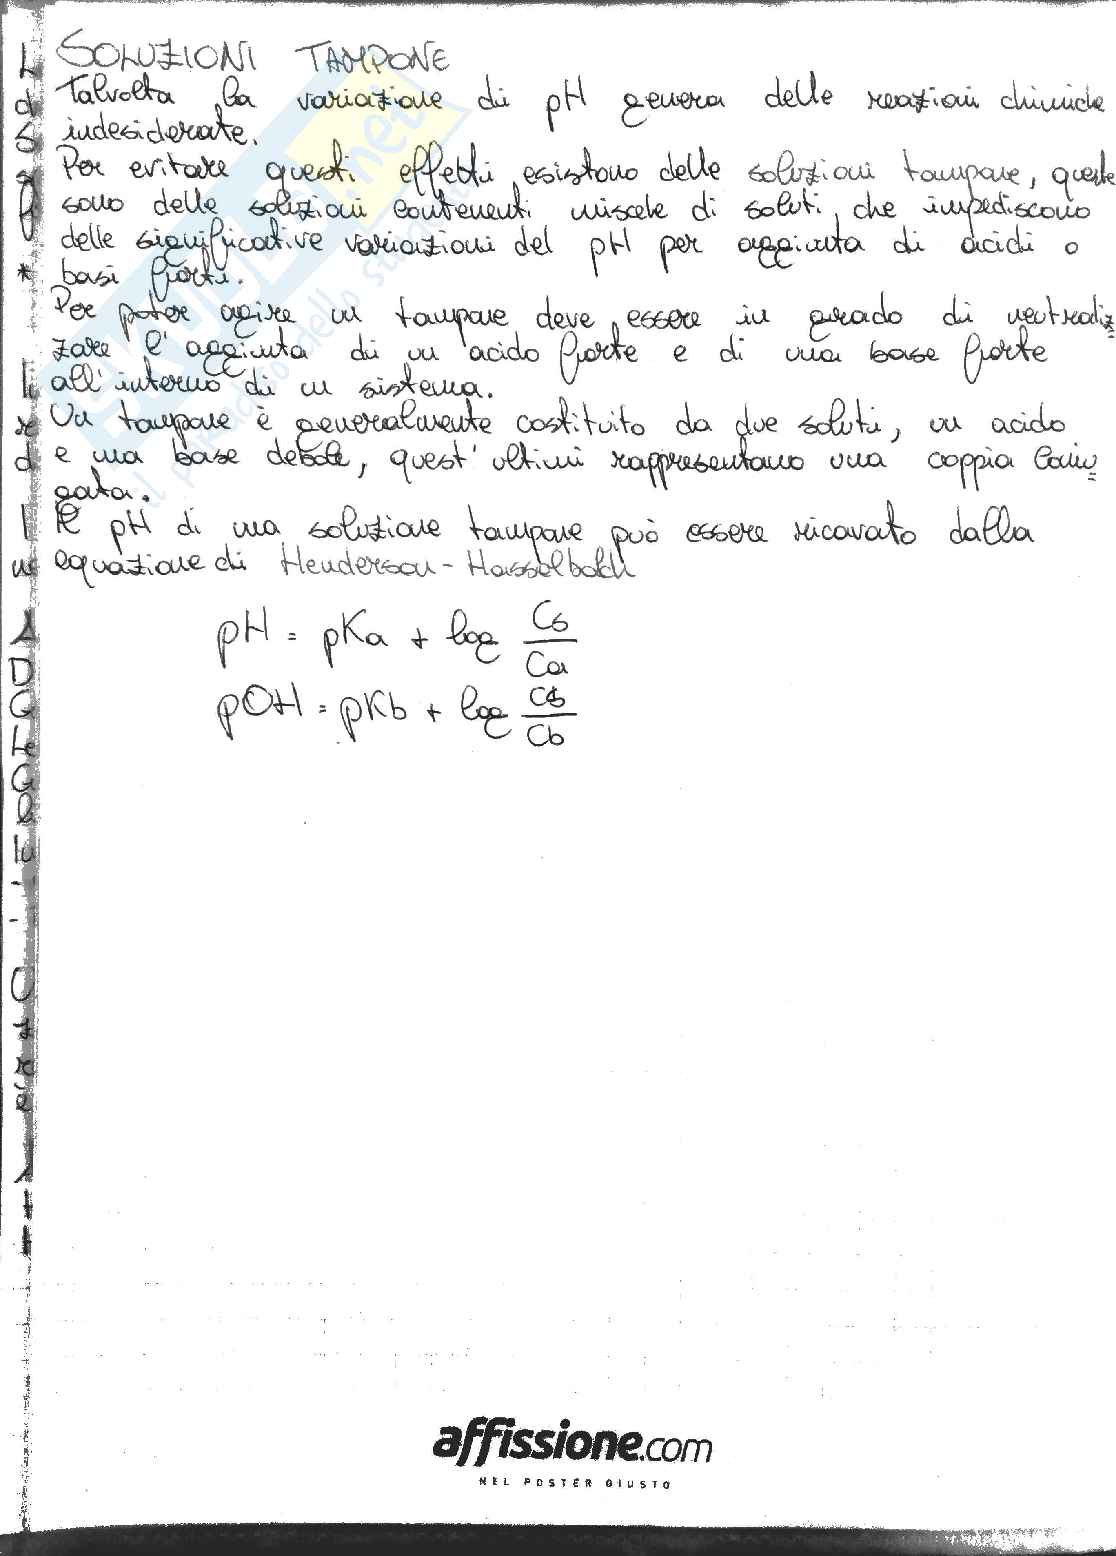 SOLUZIONI TAMPONE
Talvolta la variazione di pH genera delle reazioni chimiche
indesiderate.
Per evitare questi effetti esistono delle soluzioni tampone, queste
sono delle soluzioni contenenti miscele di soluti, che impediscono
delle significative variazioni del pH per aggiunta di acidi o
basi forti.
Per poter agire un tampone deve essere in grado di neutraliz=
zare l'aggiunta di un acido forte e di una base forte
all'interno di un sistema.
Un tampone è generalmente costituito da due soluti, un acido
e una base debole, quest'ultimi rappresentano una coppia coniu=
gata.
Il pH di una soluzione tampone può essere ricavato dalla
equazione di Henderson-Hasselbalch
pH = pKa + log Cs/Ca
pOH = pKb + log Cs/Cb
affissione.com
NEL POSTER GIUSTO